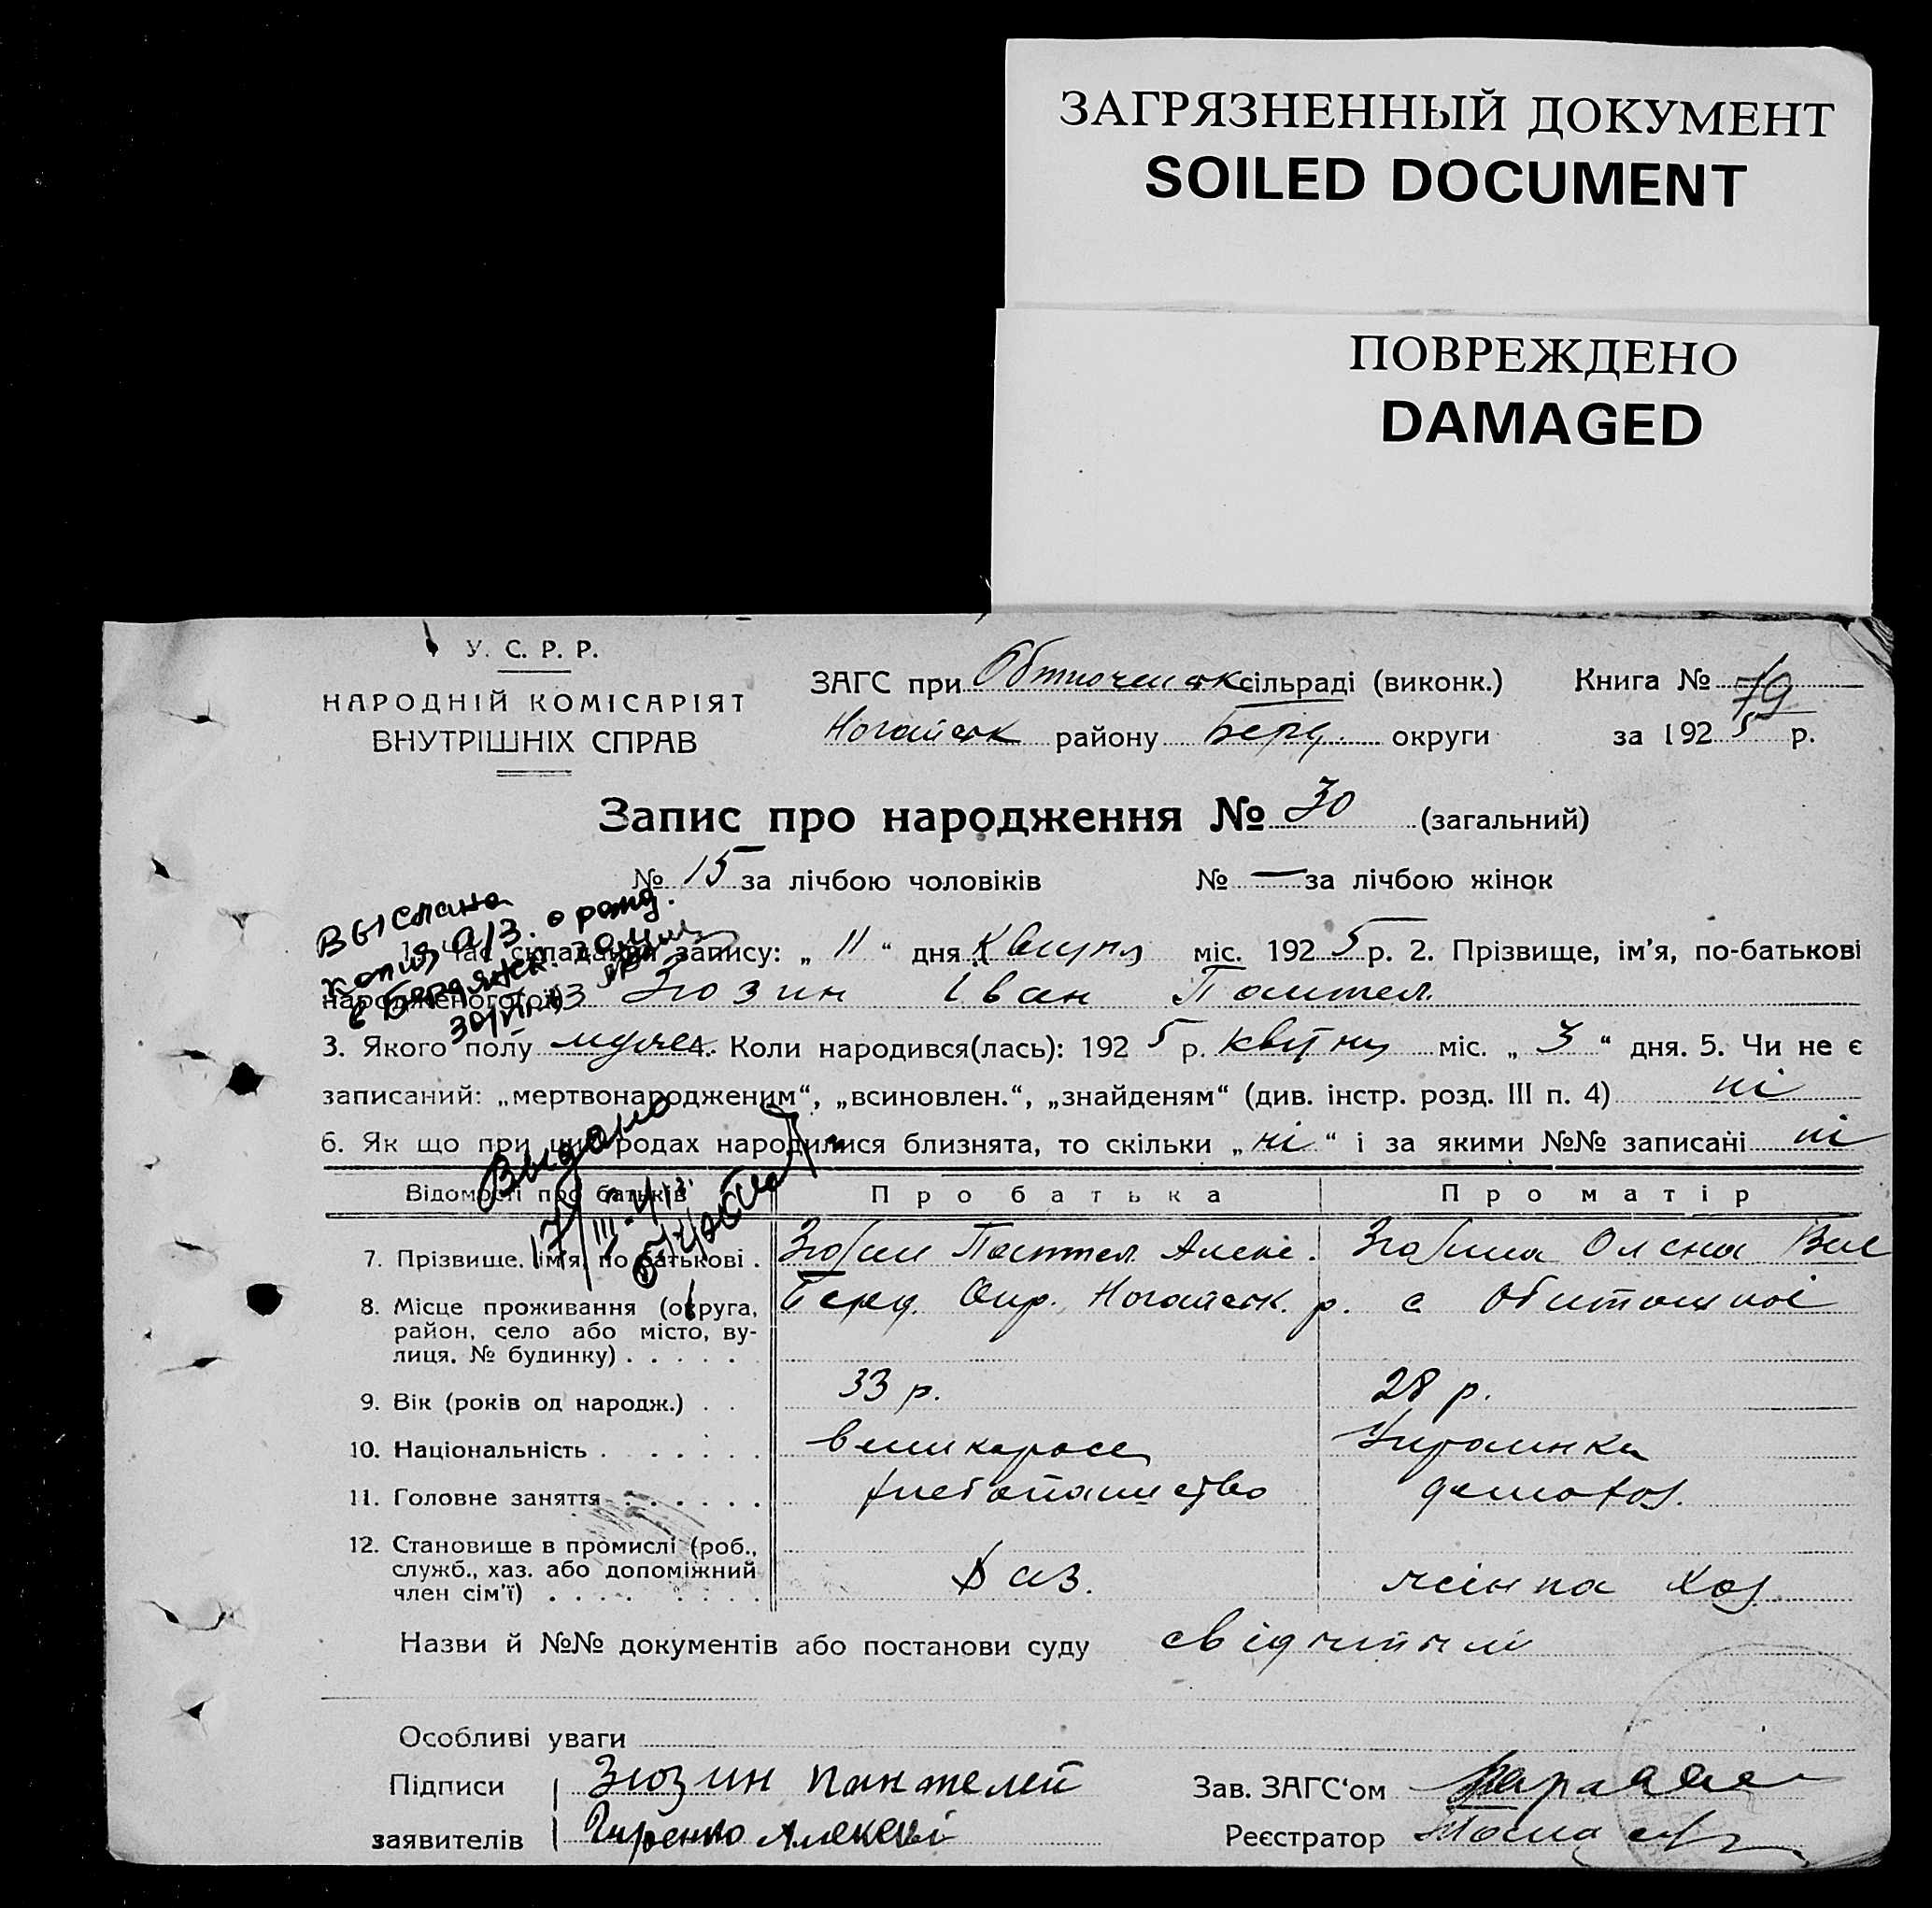 ЗАГРЯЗНЕННЫЙ ДОКУМЕНТ
SOILED DOCUMENT
ПОВРЕЖДЕНО
DAMAGED
У. С. Р. Р.
НАРОДНІЙ КОМІСАРІЯТ
ВНУТРІШНІХ СПРАВ
ЗАГС при сільраді (виконк.) Книга № 79
Ногайськ району Берд. округи за 1925 р.
Запис про народження № 30 (загальний)
№ 15 за лічбою чоловіків № — за лічбою жінок
Выслана
копия а/з. о рожд.
в Бердянск.
1. Час складання запису: „ 11 “ дня Квітня міс. 1925 р. 2. Прізвище, ім'я, по-батькові
народженого(ої) Зюзин Іван Пантел.
3. Якого полу мужеск. 4. Коли народився(лась): 1925 р. квітня міс. „ 3 “ дня. 5. Чи не є
записаний: „мертвонародженим“, „всиновлен.“, „знайденям“ (див. інстр. розд. III п. 4) ні
6. Як що при цих родах народилися близнята, то скільки „ ні “ і за якими №№ записані ні
Выдано
17/III-
Відомості про батьків Про батька Про матір
7. Прізвище, ім'я, по батькові . Зюзин Пантел. Алексі. Зюзина Олена Вас
8. Місце проживання (округа, Берд. Окр. Ногайськ. р. с Обиточної
район, село або місто, ву-
лиця, № будинку) . . . . .
9. Вік (років од народж.) . . 33 р. 28 р.
10. Національність . . . . . . великорос Українка
11. Головне заняття . . . . . . хлебопашество домохоз.
12. Становище в промислі (роб.,
служб., хаз. або допоміжний
член сім'ї) . . . . . . . . хаз. жінка хоз.
Назви й №№ документів або постанови суду
Особливі уваги
Підписи Зюзин Пантелей Зав. ЗАГС‘ом
заявителів Гиренко Алексей Реєстратор